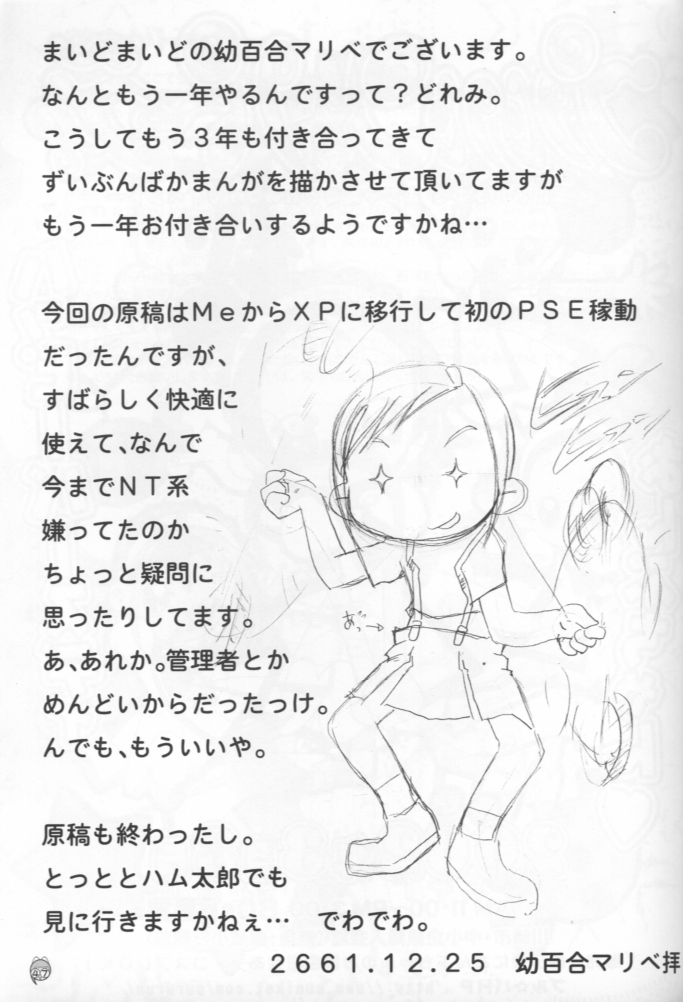 まいどまいどの幼百合マリベでございます。
なんともう一年やるんですって？どれみ。
こうしてもう３年も付き合ってきて
ずいぶんばかまんがを描かさせて頂いてますが
もう一年お付き合いするようですかね…
今回の原稿はＭｅからＸＰに移行して初のＰＳＥ稼動
だったんですが、
すばらしく快適に
使えて、なんで
今までＮＴ系
嫌ってたのか
ちょっと疑問に
思ったりしてます。
あ、あれか。管理者とか
めんどいからだったっけ。
んでも、もういいや。
あっ→
原稿も終わったし。
とっととハム太郎でも
見に行きますかねぇ…　でわでわ。
２６６１.１２.２５　幼百合マリベ拝
47